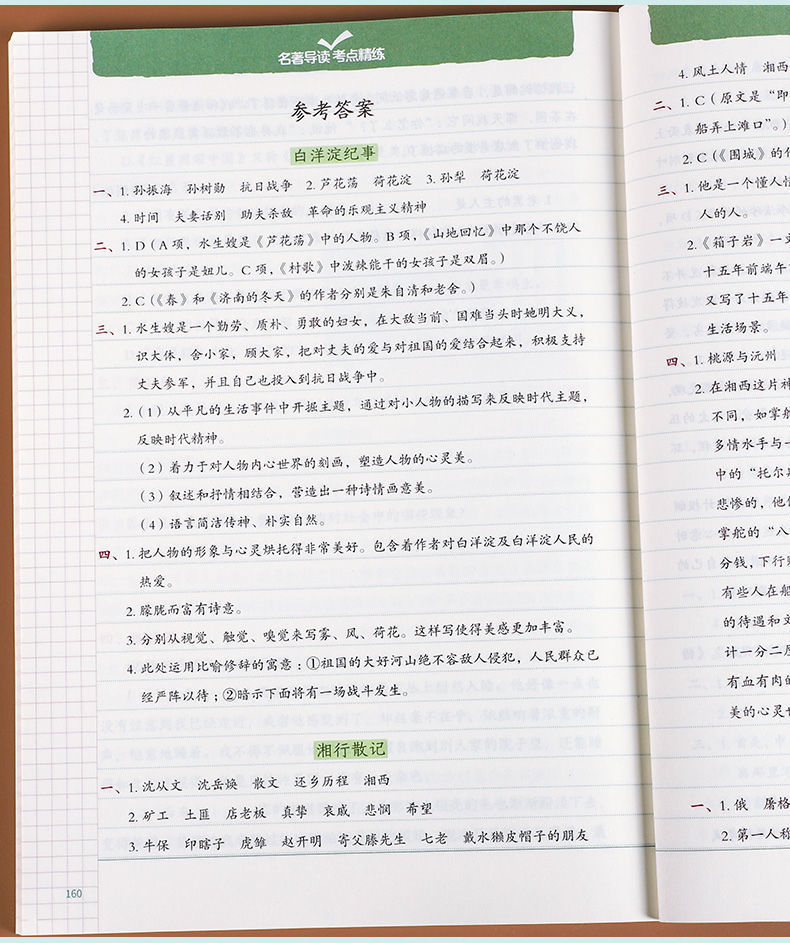 名著导读 考点精练
参考答案
白洋淀纪事
一、1. 孙振海 孙树勋 抗日战争 2. 芦花荡 荷花淀 3. 孙犁 荷花淀
4. 时间 夫妻话别 助夫杀敌 革命的乐观主义精神
二、1. D（A 项，水生嫂是《芦花荡》中的人物。B 项，《山地回忆》中那个不饶人
的女孩子是妞儿。C 项，《村歌》中泼辣能干的女孩子是双眉。）
2. C（《春》和《济南的冬天》的作者分别是朱自清和老舍。）
三、1. 水生嫂是一个勤劳、质朴、勇敢的妇女，在大敌当前、国难当头时她明大义，
识大体，舍小家，顾大家，把对丈夫的爱与对祖国的爱结合起来，积极支持
丈夫参军，并且自己也投入到抗日战争中。
2.（1）从平凡的生活事件中开掘主题，通过对小人物的描写来反映时代主题，
反映时代精神。
（2）着力于对人物内心世界的刻画，塑造人物的心灵美。
（3）叙述和抒情相结合，营造出一种诗情画意美。
（4）语言简洁传神、朴实自然。
四、1. 把人物的形象与心灵烘托得非常美好。包含着作者对白洋淀及白洋淀人民的
热爱。
2. 朦胧而富有诗意。
3. 分别从视觉、触觉、嗅觉来写雾、风、荷花。这样写使得美感更加丰富。
4. 此处运用比喻修辞的寓意：①祖国的大好河山绝不容敌人侵犯，人民群众已
经严阵以待；②暗示下面将有一场战斗发生。
湘行散记
一、1. 沈从文 沈岳焕 散文 还乡历程 湘西
2. 矿工 土匪 店老板 真挚 哀戚 悲悯 希望
3. 牛保 印瞎子 虎雏 赵开明 寄父滕先生 七老 戴水獭皮帽子的朋友
160
4. 风土人情 湘西
二、1. C（原文是“即
船弄上滩口”。）
2. C（《围城》的作
三、1. 他是一个懂人情
人的人。
2.《箱子岩》一文
十五年前端午
又写了十五年
生活场景。
四、1. 桃源与沅州
2. 在湘西这片神
不同，如掌舵
多情水手与一
中的“托尔斯
悲惨的，他们
掌舵的“八
分钱，下行则
有些人在船
的待遇和文
计一分二厘
有血有肉的
美的心灵世
一、1. 俄 屠格
2. 第一人称